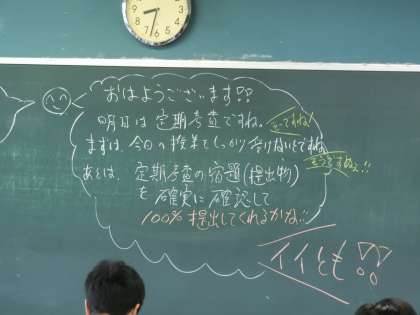 おはようございます!!
明日は定期考査ですね。
そうですね!
まずは、今日の授業でしっかり受けないとですね。
そうですねぇ!!
あとは、定期考査の宿題(提出物)
を確実に確認して
100%提出してくれるかな!!
イイとも!!